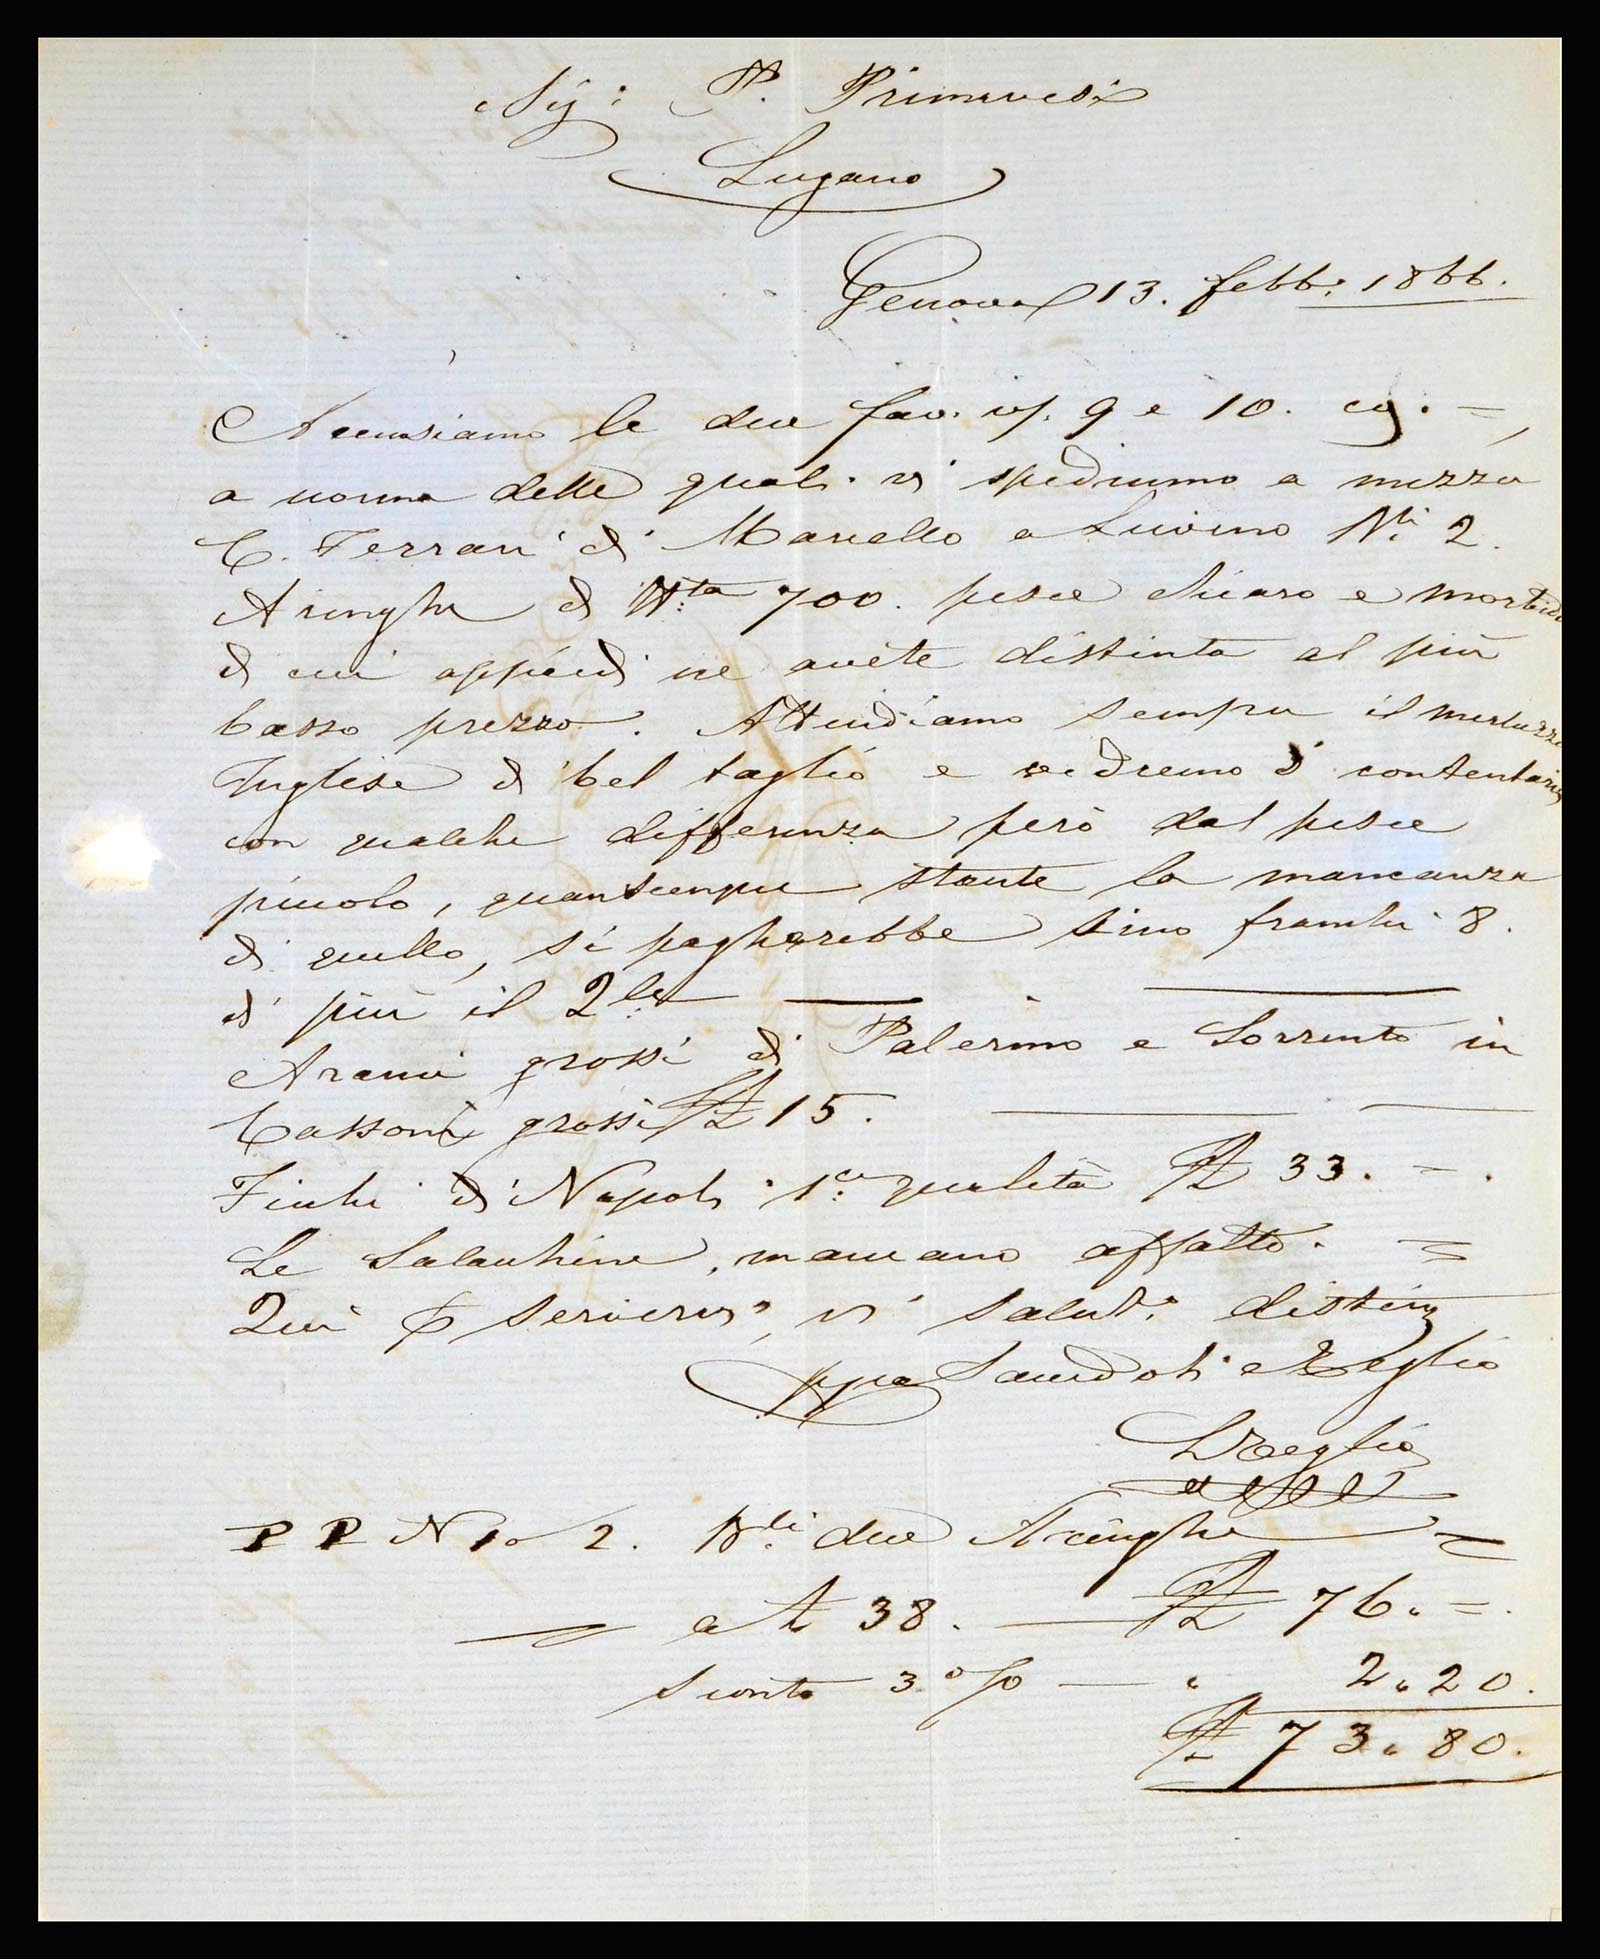 Sig: P. Primavesi
Lugano
Genova 13. febb: 1866.
Accusiamo le due fav. vs. 9 e 10. cg. =,
a norma delle quali vi spedimmo a mezzo
C. Ferrari di Marcello a Luvino Nᵢ 2.
Aringhe di 700. pesce chiaro e morbido
di cui appiedi ne avete distinta al più
basso prezzo. Attendiamo sempre il merluzzo
Inglese di bel taglio e vedremo di contentarvi
con qualche differenza però dal pesce
piccolo, quantunque stante la mancanza
di quello, si pagherebbe sino franchi 8.
di più il 2le
Aranci grossi di Palermo e Sorrento in
Cassoni grossi 15.
Fichi di Napoli 1a: qualità 33. = .
Le Salacchine, mancano affatto. =
Qui p servirvi, vi salut: distin
ppa Sandoli e Zeglio
Zeglio
P P N 1 a 2. Bli due Aringhe =
a 38. — 76. =.
Sconto 3 % — " 2,20.
73,80.